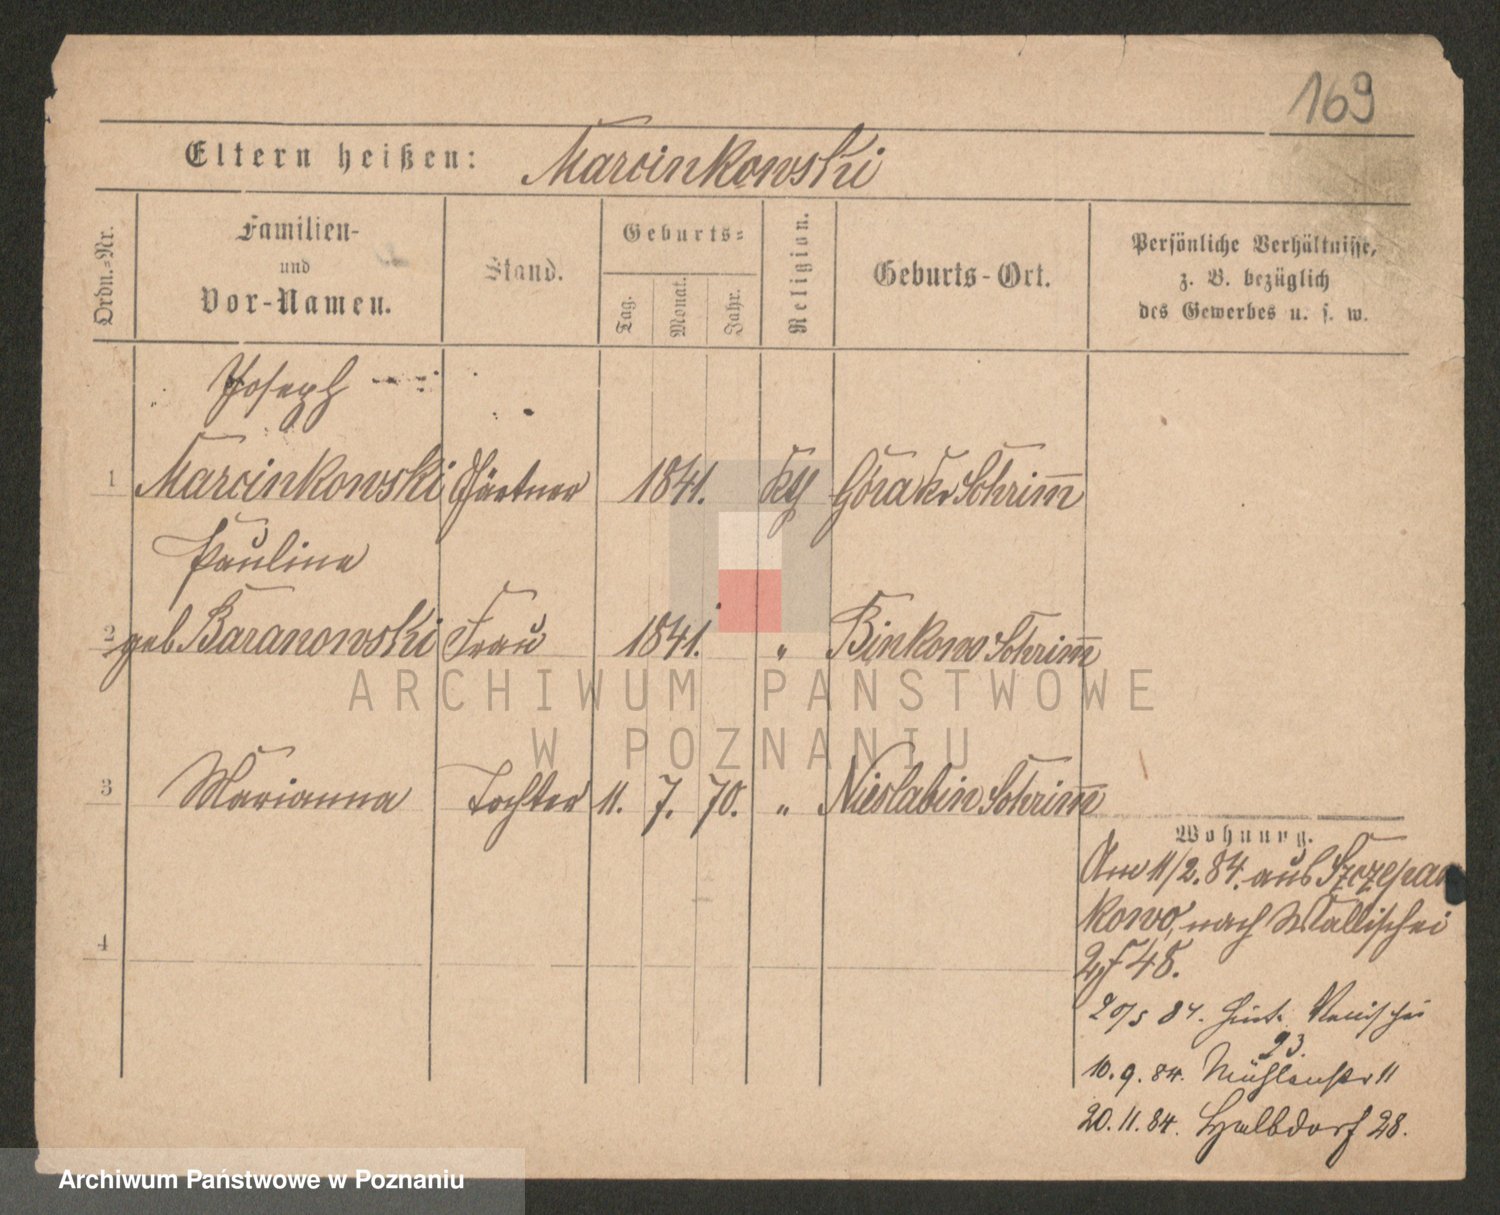 169
Eltern heißen: Marcinkowski
Ordn.-Nr.
Familien-
und
Vor-Namen.
Stand.
Geburts-
Tag.
Monat.
Jahr.
Religion.
Geburts-Ort.
Persönliche Verhältnisse,
z. B. bezüglich
des Gewerbes u. s. w.
Joseph
1 Marcinkowski Gärtner 1841. Góra Kr Schrim̅
Pauline
2 geb Baranowski Frau 1841. " Binkowo Schrim̅
3 Marianna Tochter 11. 7. 70. " Nieslabin Schrim̅
4
Wohnung.
Am 11/2. 84. aus Szczepan
kowo, nach Wallischei
48.
20/5 84.
93.
10. 9. 84. Mühlenstr 11
20. 11. 84. Halbdorf 28.
ARCHIWUM PAŃSTWOWE
W POZNANIU
Archiwum Państwowe w Poznaniu